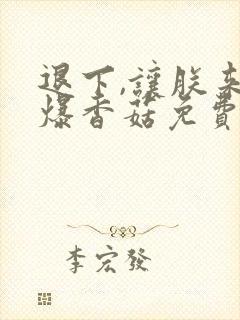 退下,讓朕來
爆香菇免費
李宏發